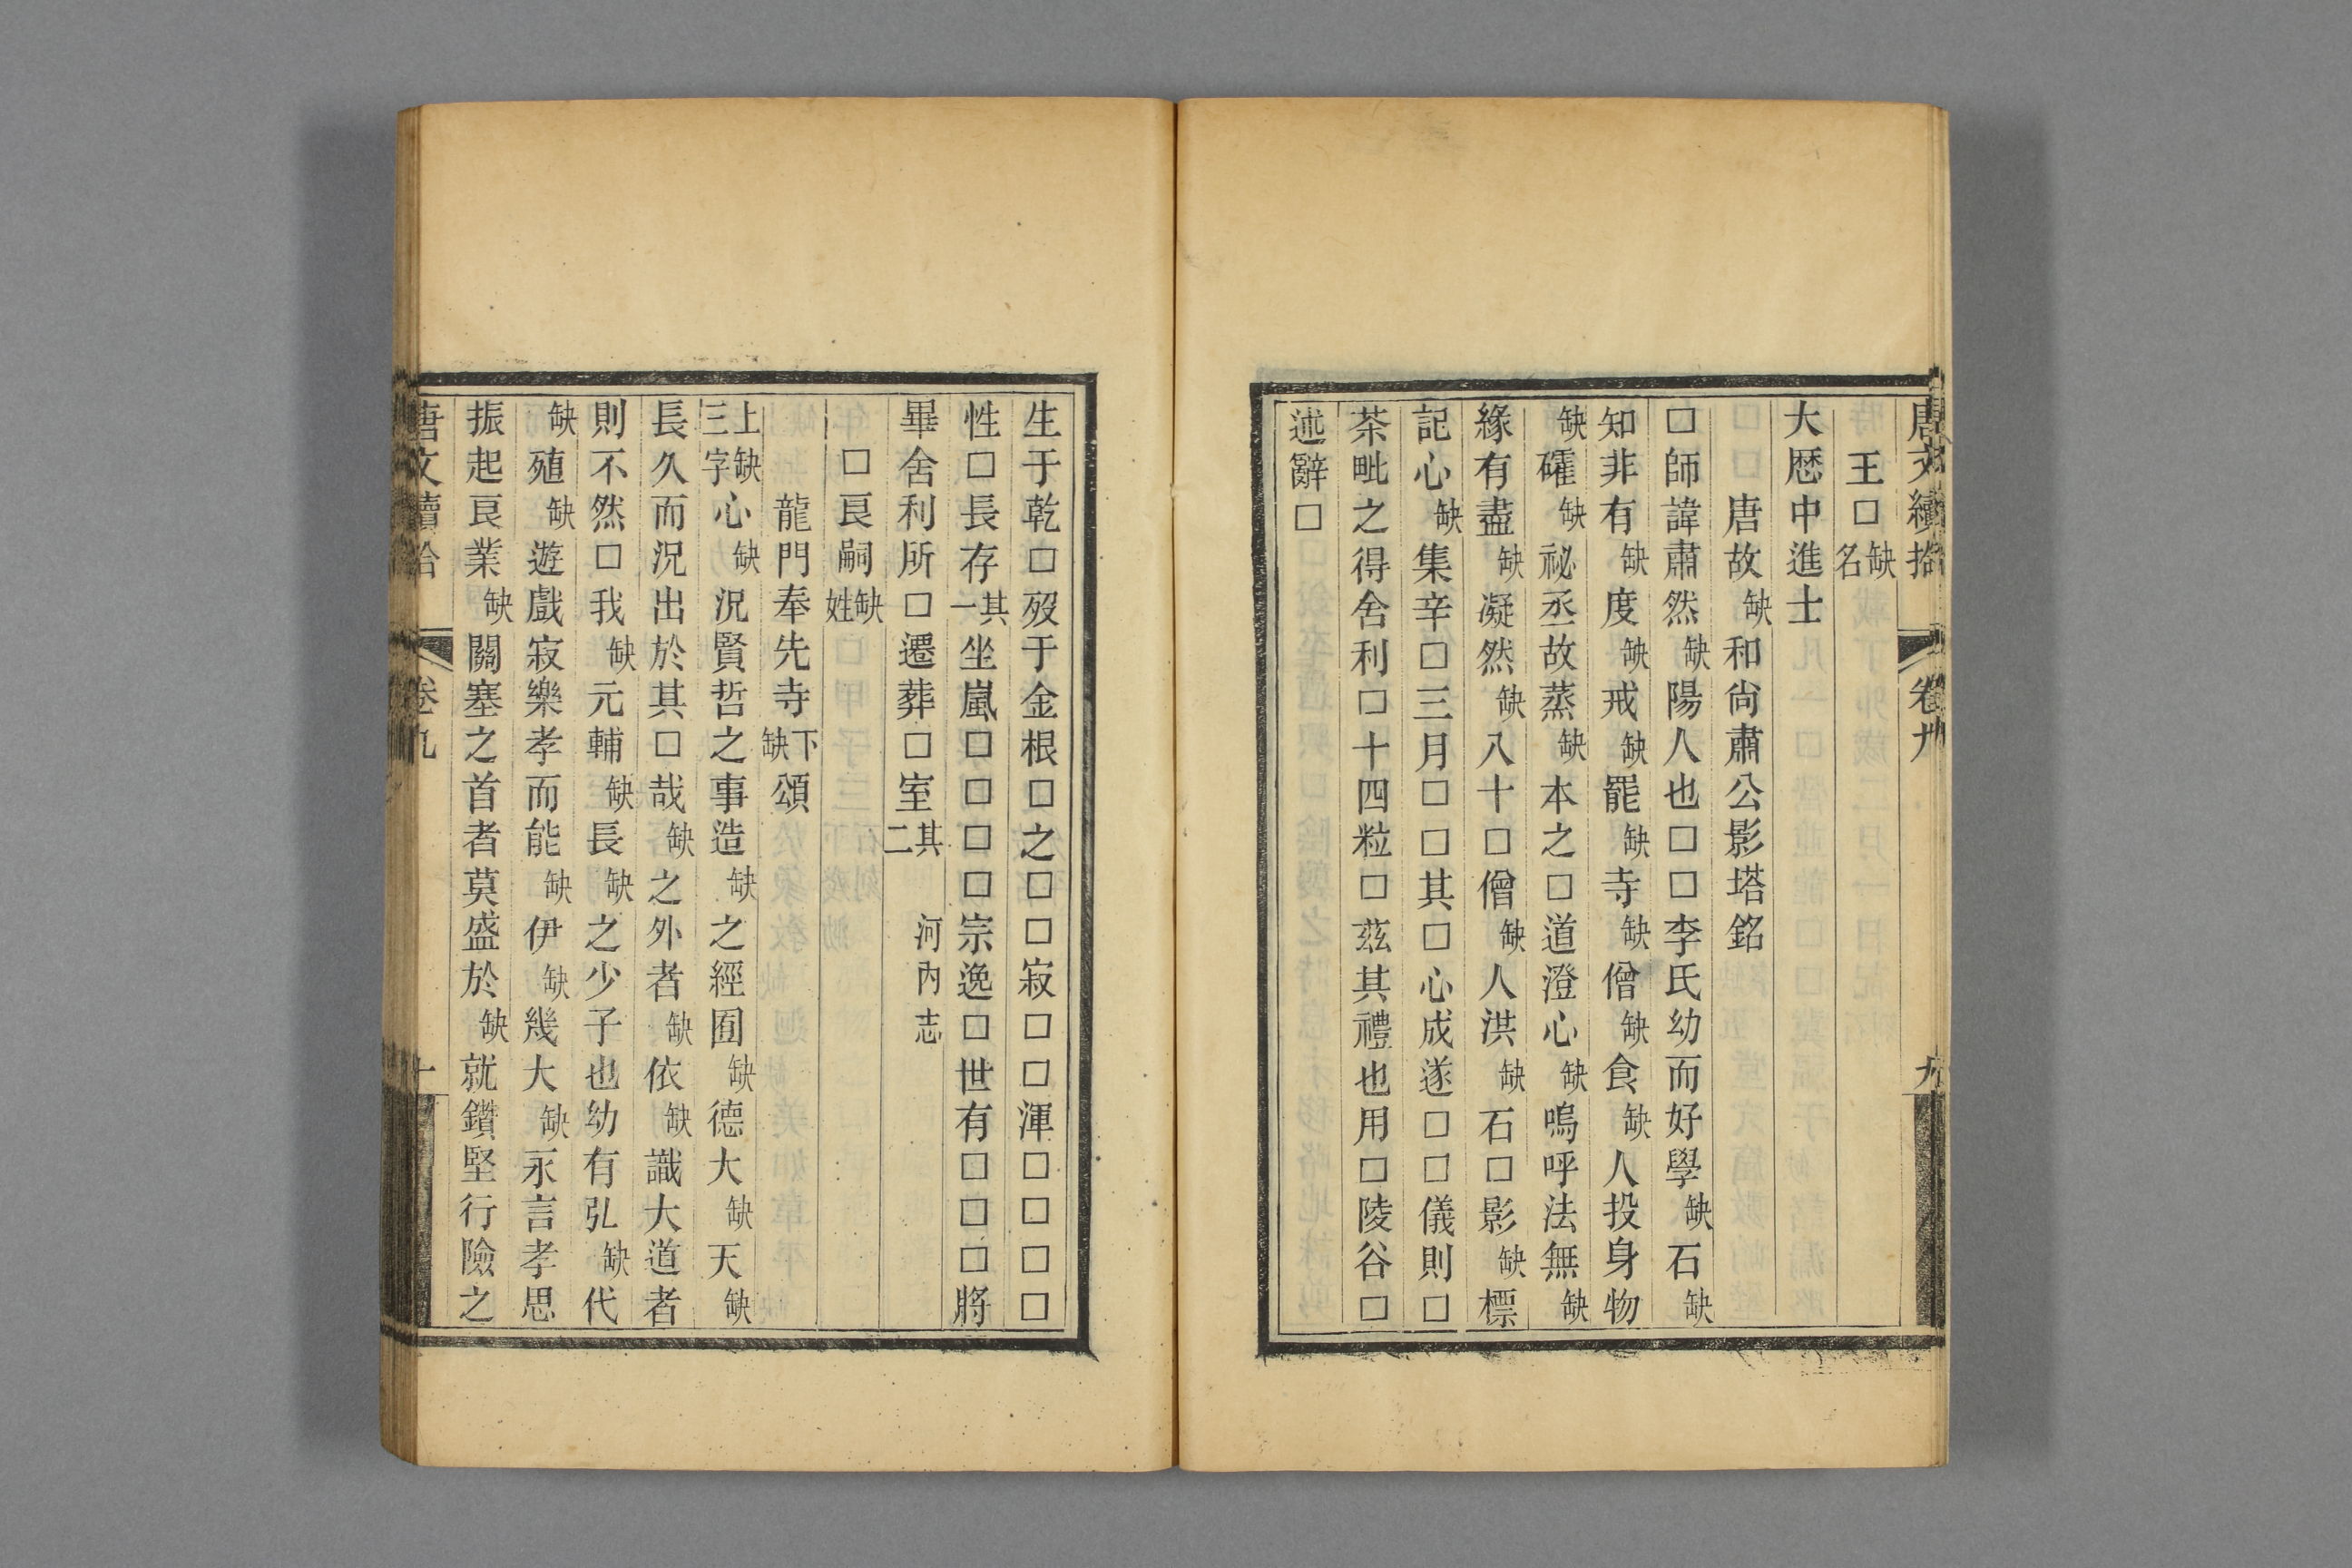 唐文續拾 卷九 九
王□缺名
大厯中進士
唐故缺和尙肅公影塔銘
□師諱肅然缺陽人也□□李氏幼而好學缺石缺
知非有缺度缺戒缺罷缺寺缺僧缺食缺人投身物
缺礭缺祕丞故蒸缺本之□道澄心缺嗚呼法無缺
緣有盡缺凝然缺八十□僧缺人洪缺石□影缺標
記心缺集辛□三月□□其□心成遂□□儀則□
茶毗之得舍利□十四粒□茲其禮也用□陵谷□
述辭□
生于乾□歿于金根□之□□寂□□渾□□□□
性□長存其一坐嵐□□□□宗逸□世有□□□將
畢舍利所□遷葬□室其二 河內志
□良嗣缺姓
龍門奉先寺下缺頌
上缺三字心缺況賢哲之事造缺之經囿缺德大缺天缺
長久而況出於其□哉缺之外者缺依缺識大道者
則不然□我缺元輔缺長缺之少子也幼有弘缺代
缺殖缺遊戲寂樂孝而能缺伊缺幾大缺永言孝思
振起良業缺關塞之首者莫盛於缺就鑽堅行險之
唐文續拾 卷九 十